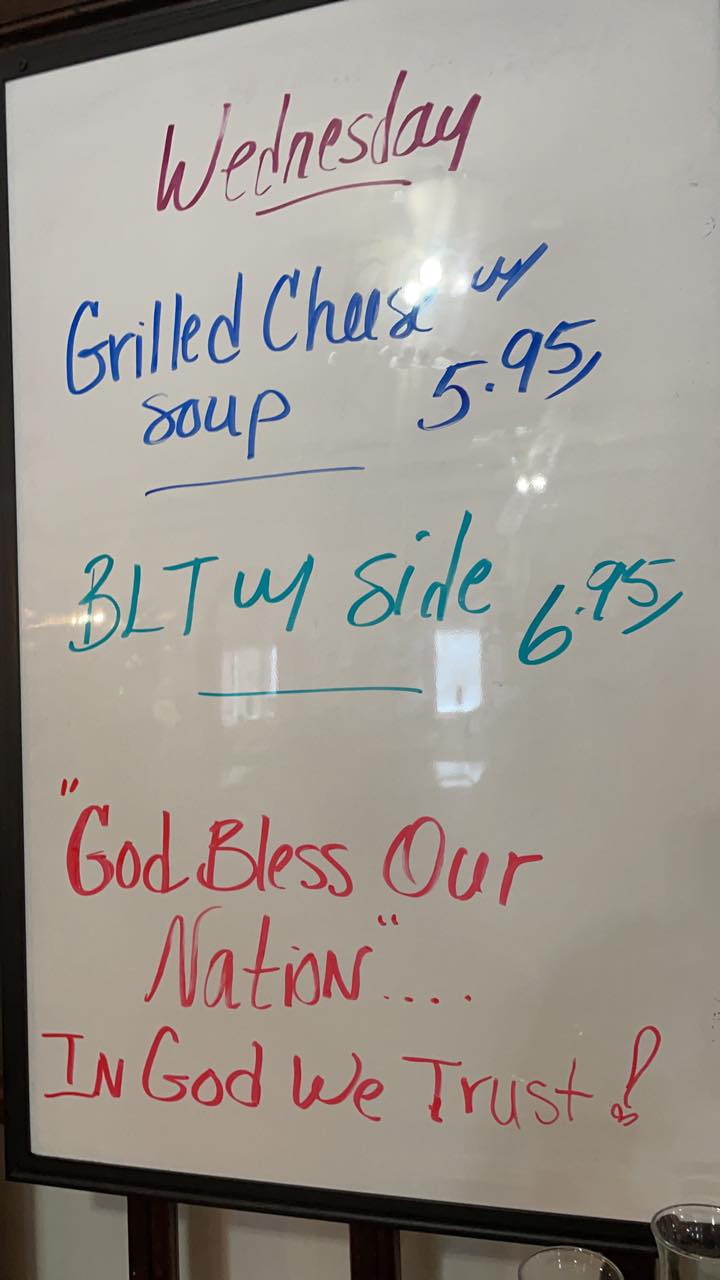 Wednesday
Grilled Cheese w/
soup 5.95
BLT w/ side 6.95
"God Bless Our
Nation"....
In God We Trust!